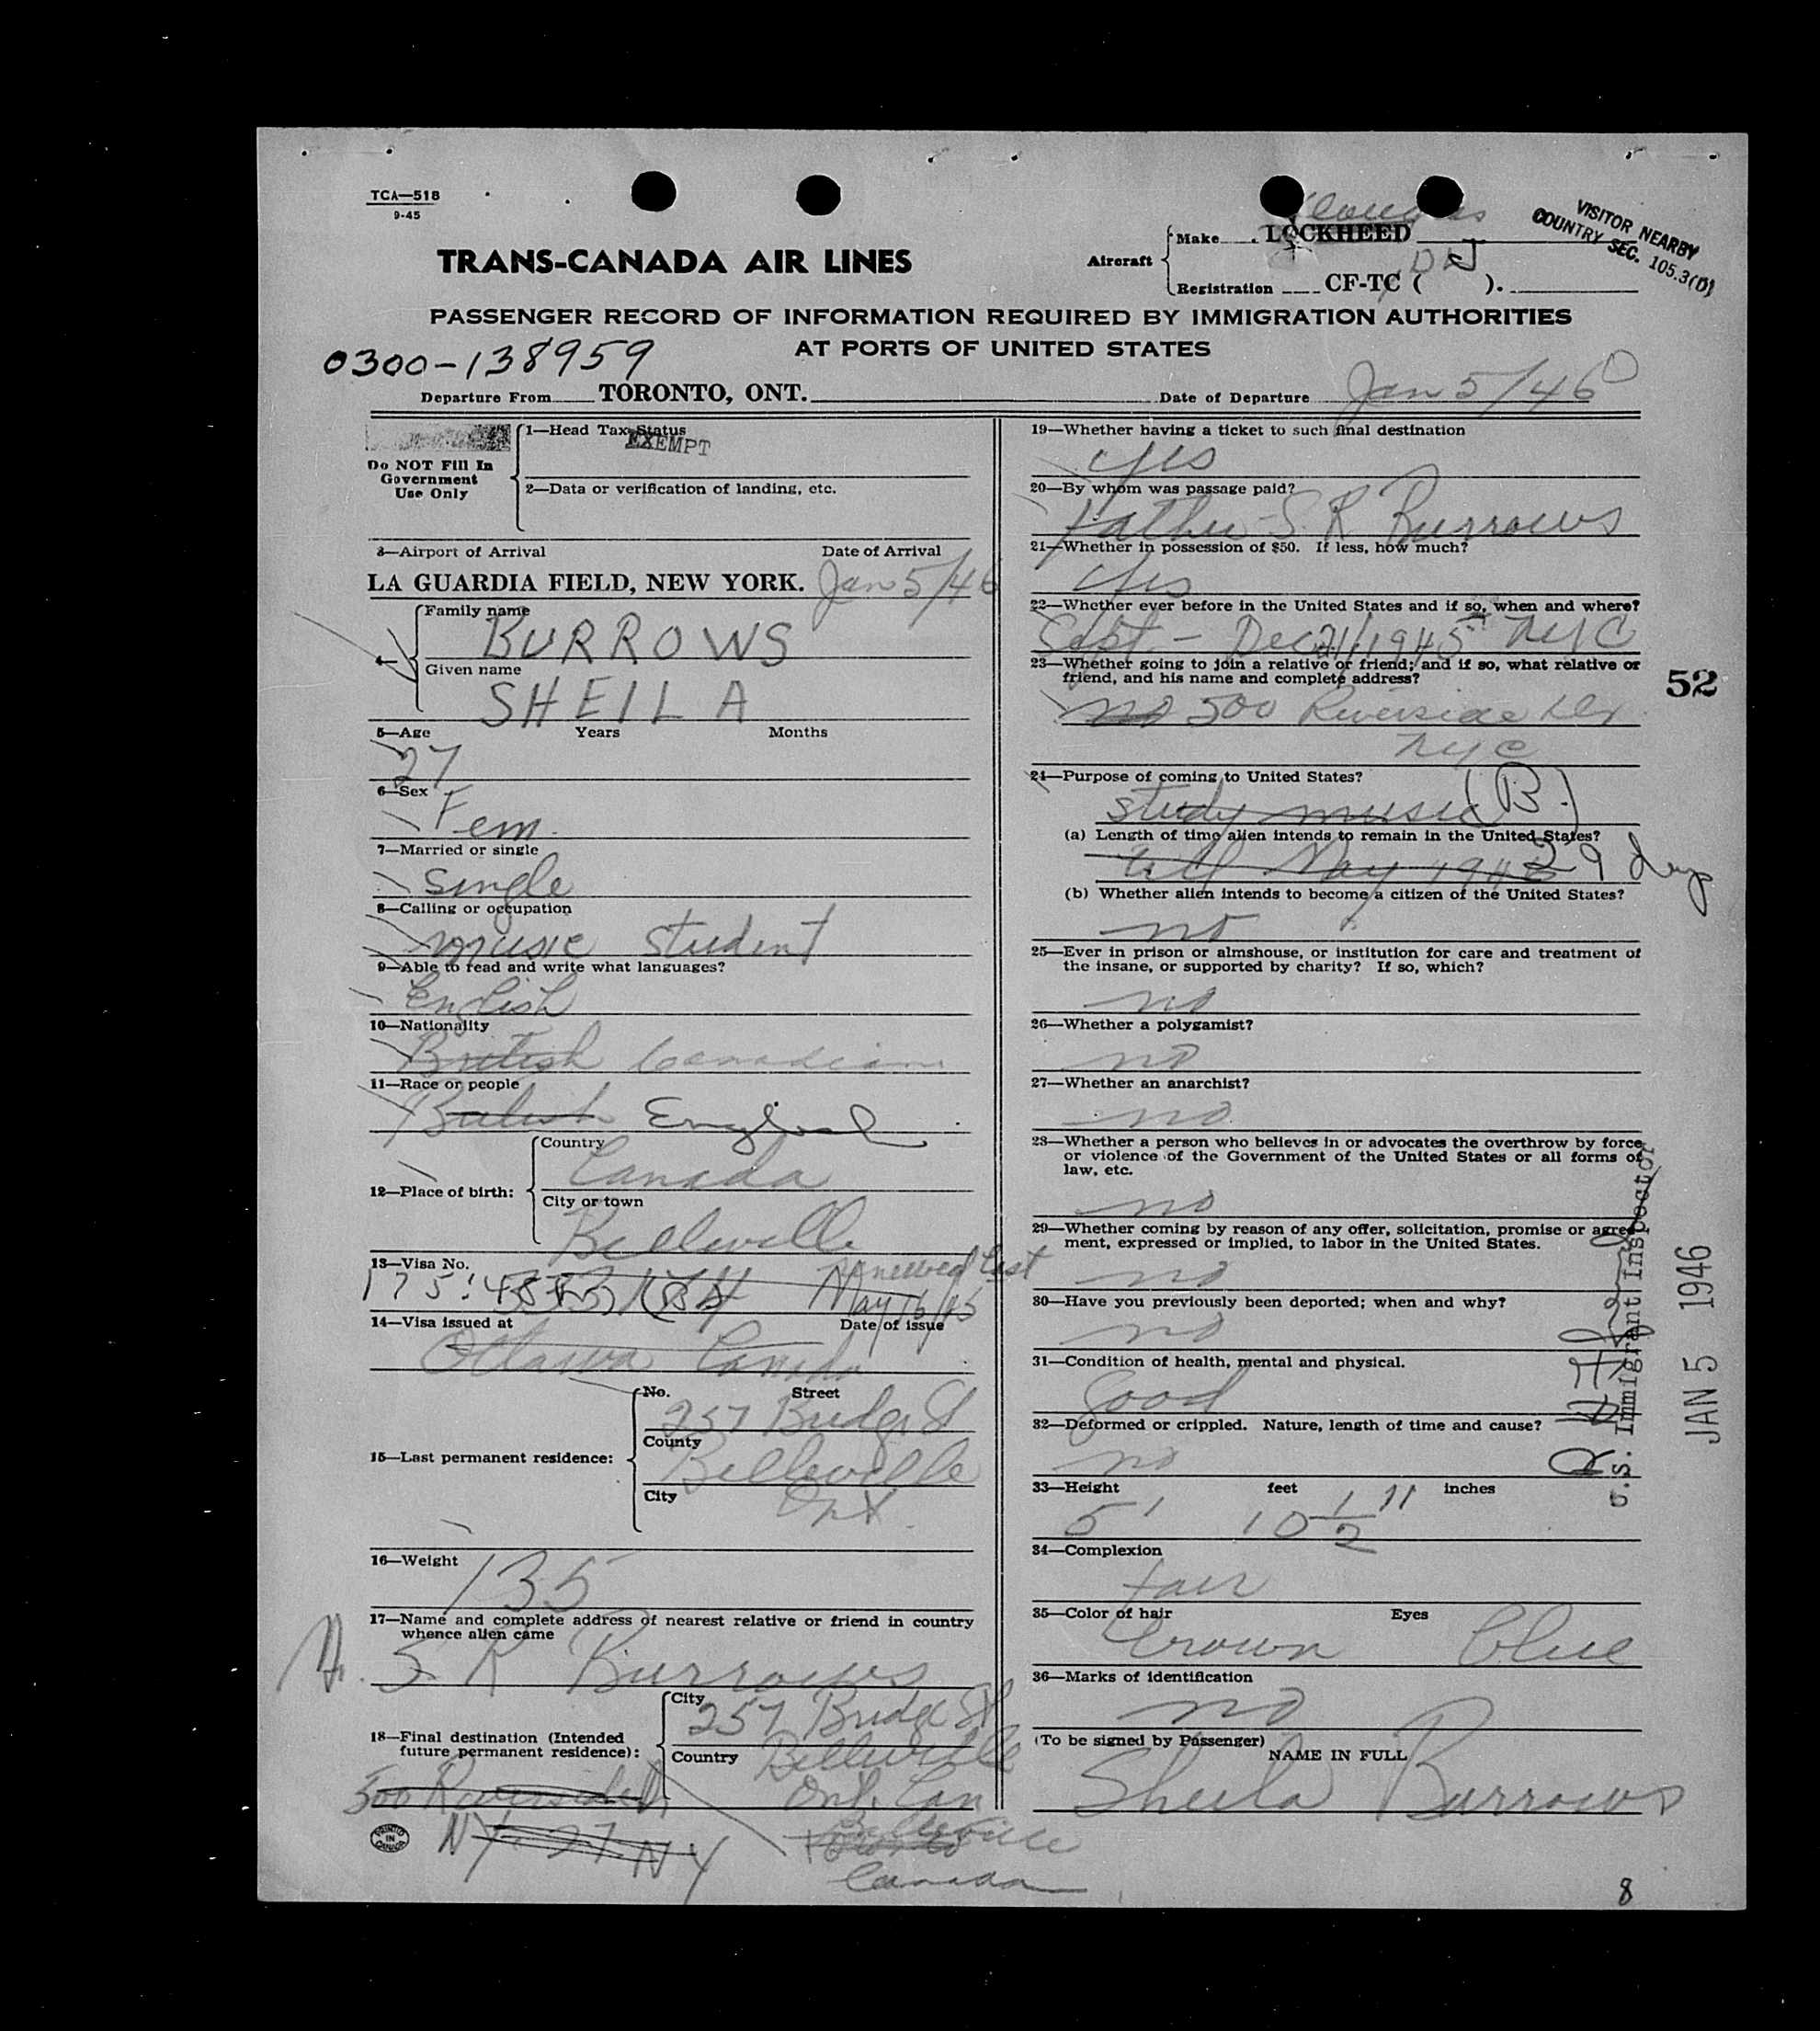 TCA—518
9-45
VISITOR NEARBY
COUNTRY SEC. 105.3(b)
TRANS-CANADA AIR LINES
Aircraft
Make LOCKHEED
Douglas
Registration CF-TC ( D J ).
PASSENGER RECORD OF INFORMATION REQUIRED BY IMMIGRATION AUTHORITIES
AT PORTS OF UNITED STATES
0300-138959
Departure From TORONTO, ONT.
Date of Departure Jan 5/46
Do NOT Fill In
Government
Use Only
1—Head Tax Status
EXEMPT
2—Data or verification of landing, etc.
3—Airport of Arrival Date of Arrival
LA GUARDIA FIELD, NEW YORK. Jan 5/46
4—
Family name
BURROWS
Given name
SHEILA
5—Age Years Months
27
6—Sex
Fem.
7—Married or single
Single
8—Calling or occupation
music student
9—Able to read and write what languages?
English
10—Nationality
British Canadian
11—Race or people
British English
12—Place of birth:
Country
Canada
City or town
Belleville
13—Visa No.
May 16/45
14—Visa issued at Date of issue
Ottawa Canada
15—Last permanent residence:
No. Street
257 Bridge St
County
Belleville
City
Ont
16—Weight
135
17—Name and complete address of nearest relative or friend in country
whence alien came
S R Burrows
18—Final destination (Intended
future permanent residence):
City
257 Bridge St
Country Belleville
500 Riverside Dr
Ont. Can
NY 27 NY
Belleville
Toronto
Canada
PRINTED
IN
CANADA
19—Whether having a ticket to such final destination
yes
20—By whom was passage paid?
Father - S. R Burrows
21—Whether in possession of $50. If less, how much?
yes
22—Whether ever before in the United States and if so, when and where?
Sept - Dec 21/1945 NYC
23—Whether going to join a relative or friend; and if so, what relative or
friend, and his name and complete address?
no 500 Riverside Dr
NYC
52
24—Purpose of coming to United States?
study music (B.)
(a) Length of time alien intends to remain in the United States?
till May 1946 29 days
(b) Whether alien intends to become a citizen of the United States?
no
25—Ever in prison or almshouse, or institution for care and treatment of
the insane, or supported by charity? If so, which?
no
26—Whether a polygamist?
no
27—Whether an anarchist?
no
28—Whether a person who believes in or advocates the overthrow by force
or violence of the Government of the United States or all forms of
law, etc.
no
29—Whether coming by reason of any offer, solicitation, promise or agree-
ment, expressed or implied, to labor in the United States.
no
30—Have you previously been deported; when and why?
no
31—Condition of health, mental and physical.
Good
32—Deformed or crippled. Nature, length of time and cause?
no
33—Height feet inches
5' 10 1/2"
34—Complexion
fair
35—Color of hair Eyes
brown blue
36—Marks of identification
no
(To be signed by Passenger)
NAME IN FULL
Sheila Burrows
U.S. Immigrant Inspector
JAN 5 1946
8